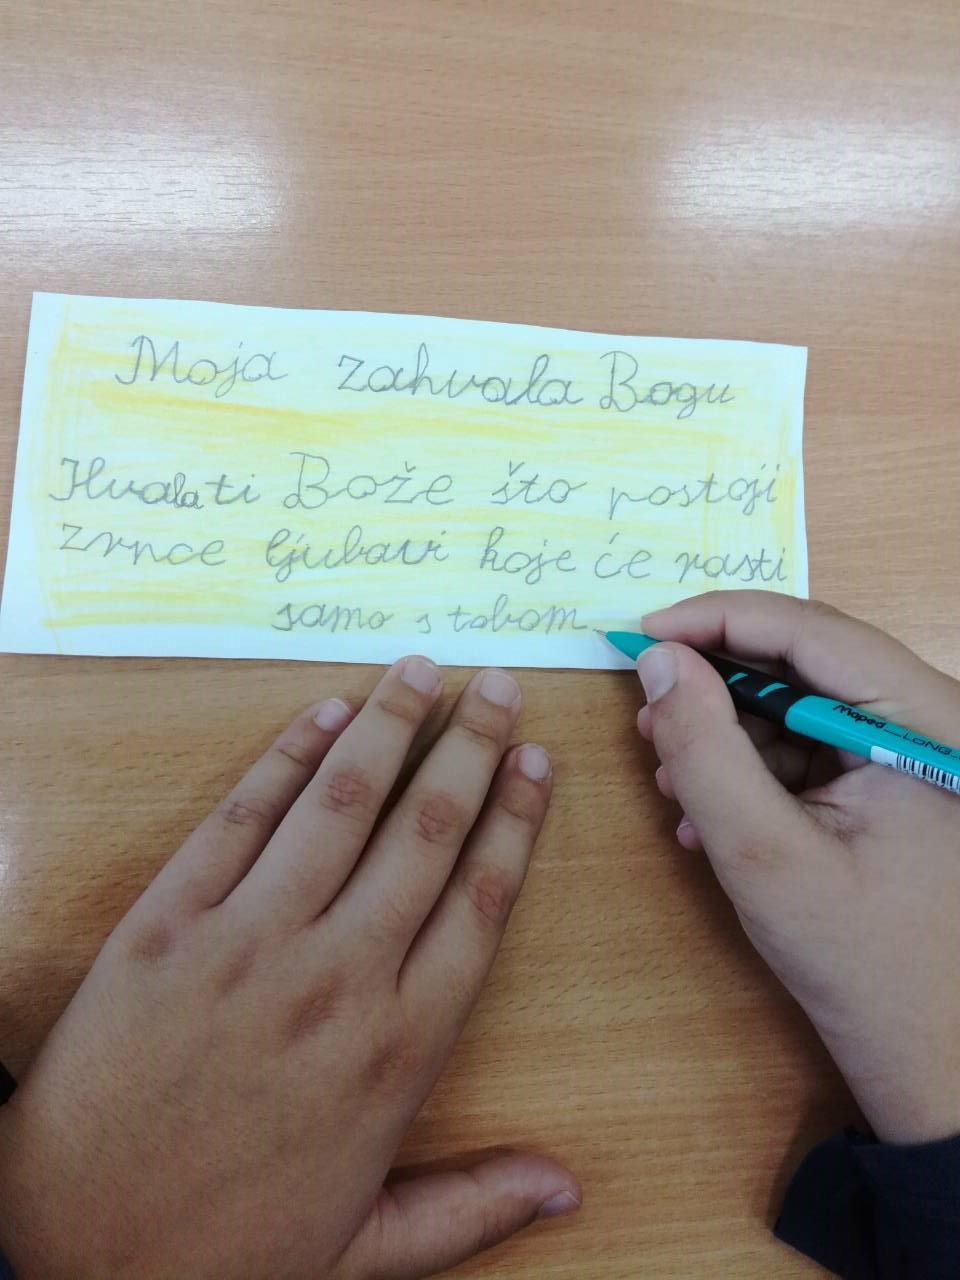 Moja zahvala Bogu
Hvala ti Bože što postoji
zrnce ljubavi koje će rasti
samo s tobom.
Maped LONG